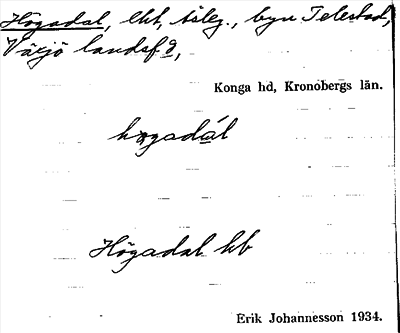 Högadal, lht, äsleg., byn Telestad,
Växjö landsf.,
Konga hd, Kronobergs län.
högadál
Högadal kb
Erik Johannesson 1934.